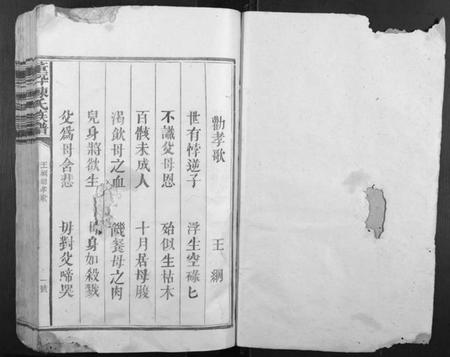 勸孝歌 王綱
世有悖逆子 浮生空碌匕
不識父母恩 殆似生枯木
百骸未成人 十月居母腹
渴飲母之血 饑餐母之肉
兒身將欲生 母身如殺戮
父爲母含悲 母對父啼哭
陳氏族譜
王綱勸孝歌
一號